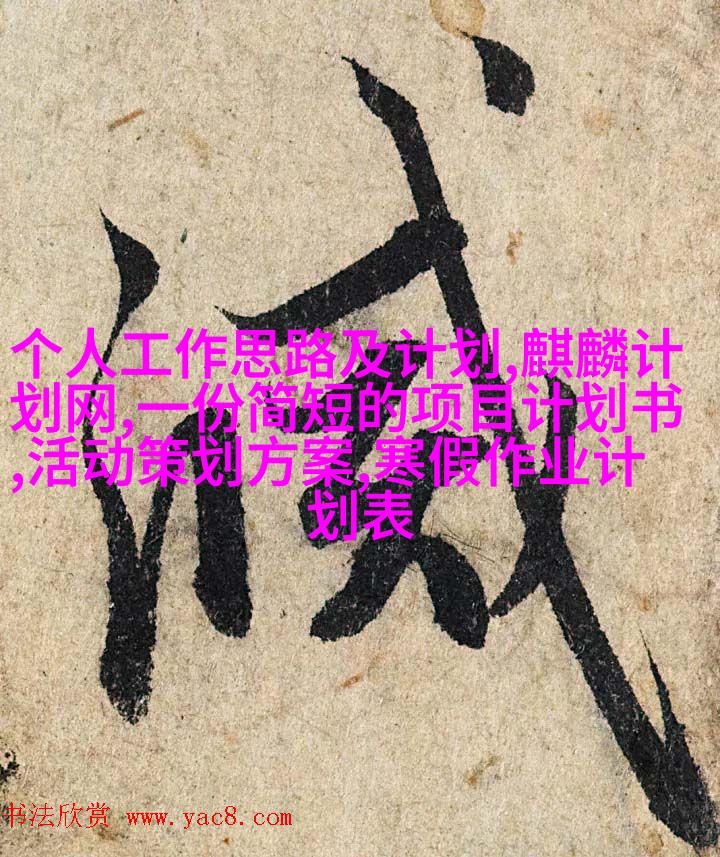 个人工作思路及计划,麒麟计
划网,一份简短的项目计划书
,活动策划方案,寒假作业计
划表
书法欣赏 www.yac8.com